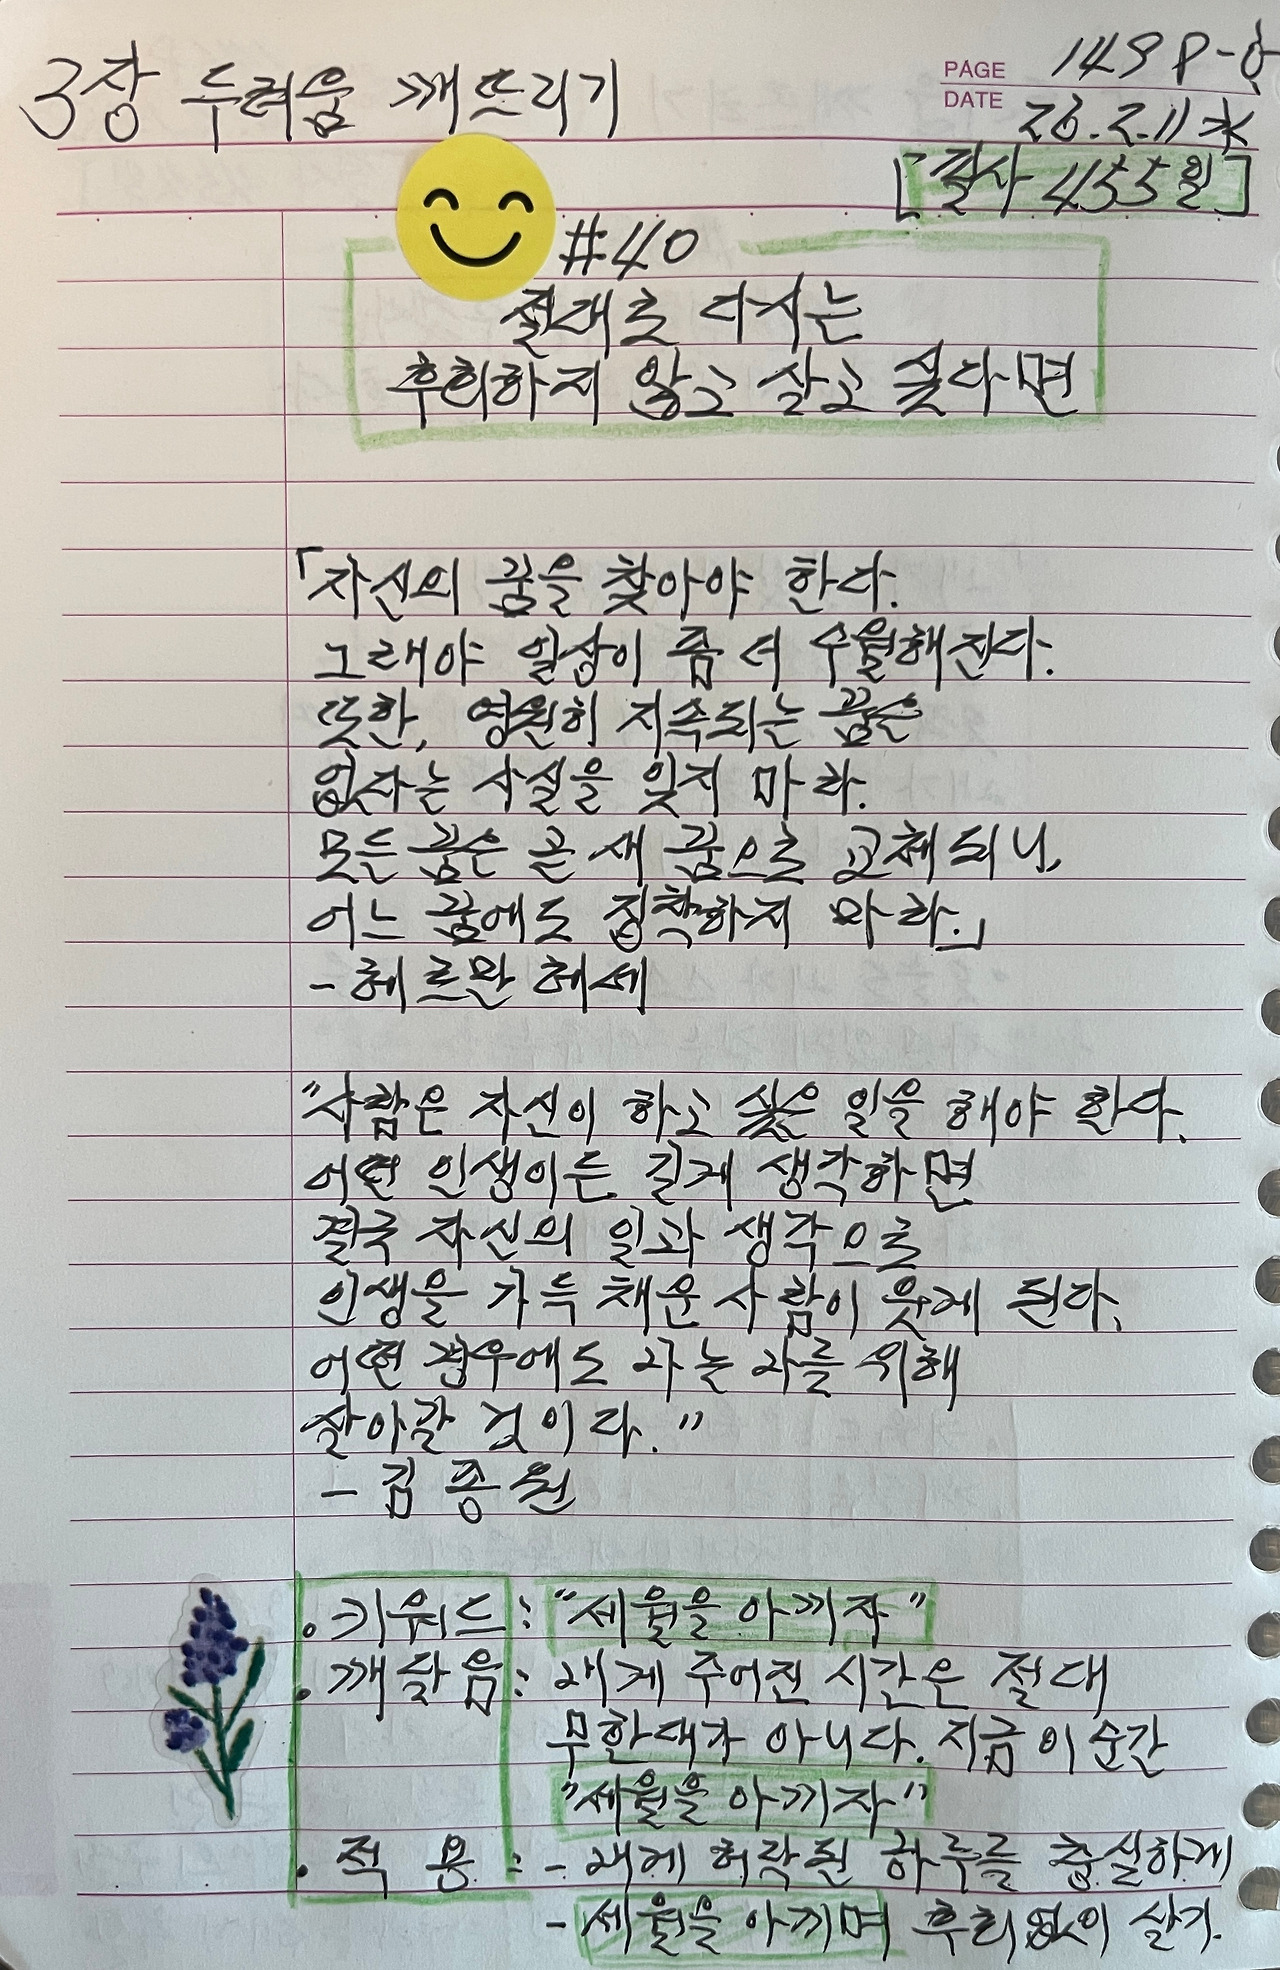 3장 두려움 깨뜨리기
PAGE 149 P-상
DATE 26.2.11 水
[필사 455일]
#40
절대로 다시는
후회하지 않고 살고 싶다면
「자신의 꿈을 찾아야 한다.
그래야 일상이 좀 더 수월해진다.
또한, 영원히 지속되는 꿈은
없다는 사실을 잊지 마라.
모든 꿈은 곧 새 꿈으로 교체되니,
어느 꿈에도 집착하지 마라.」
- 헤르만 헤세
"사람은 자신이 하고 싶은 일을 해야 한다.
어떤 인생이든 길게 생각하면
결국 자신의 일과 생각으로
인생을 가득 채운 사람이 웃게 된다.
어떤 경우에도 나는 나를 위해
살아갈 것이다."
- 김종원
. 키워드 : "세월을 아끼자"
. 깨달음 : 내게 주어진 시간은 절대
무한대가 아니다. 지금 이 순간
"세월을 아끼자"
. 적용 : - 내게 허락된 하루를 충실하게
- 세월을 아끼며 후회없이 살기.